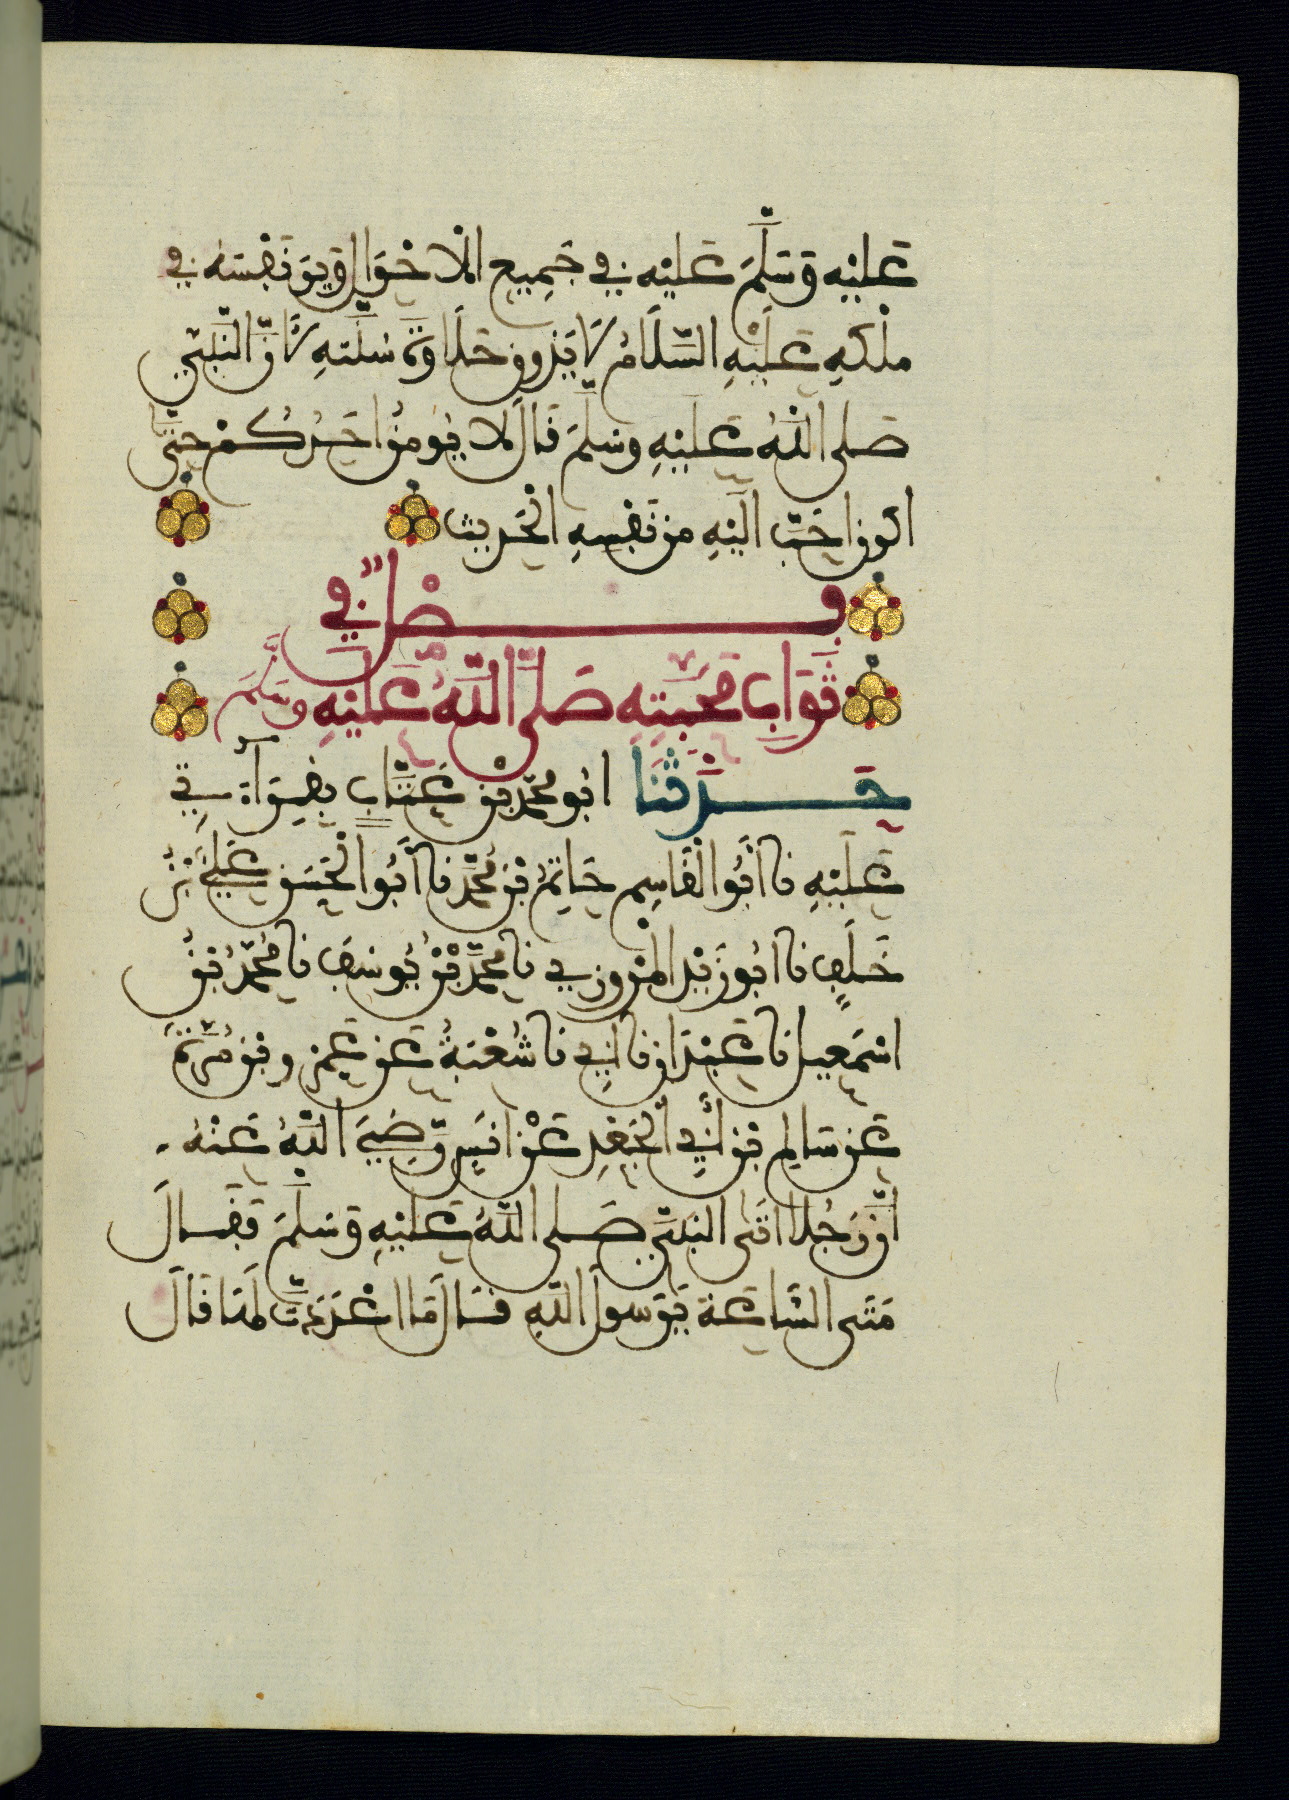 عليه وسلم عليه في جميع الاحوال ويرَ نفسه في
ملكه عليه السلام لا يذوق حلاوة سنته لان النبي
صلى الله عليه وسلم قال لا يومن احدكم حتى
اكون احب اليه من نفسه الحديث
فصل في
ثواب محبته صلى الله عليه وسلم
حدثنا ابو محمد بن عتاب بقراءتي
عليه نا أبو القاسم حاتم بن محمد نا أبو الحسن علي بن
خلف نا ابو زيد المروزي نا محمد بن يوسف نا محمد بن
اسمعيل نا عبدان نا أبي نا شعبة عن عمرو بن مرة
عن سالم بن أبي الجعد عن انس رضي الله عنه
أن رجلا اتى النبي صلى الله عليه وسلم فقال
متى الساعة يرسول الله قال ما اعددت لها قال